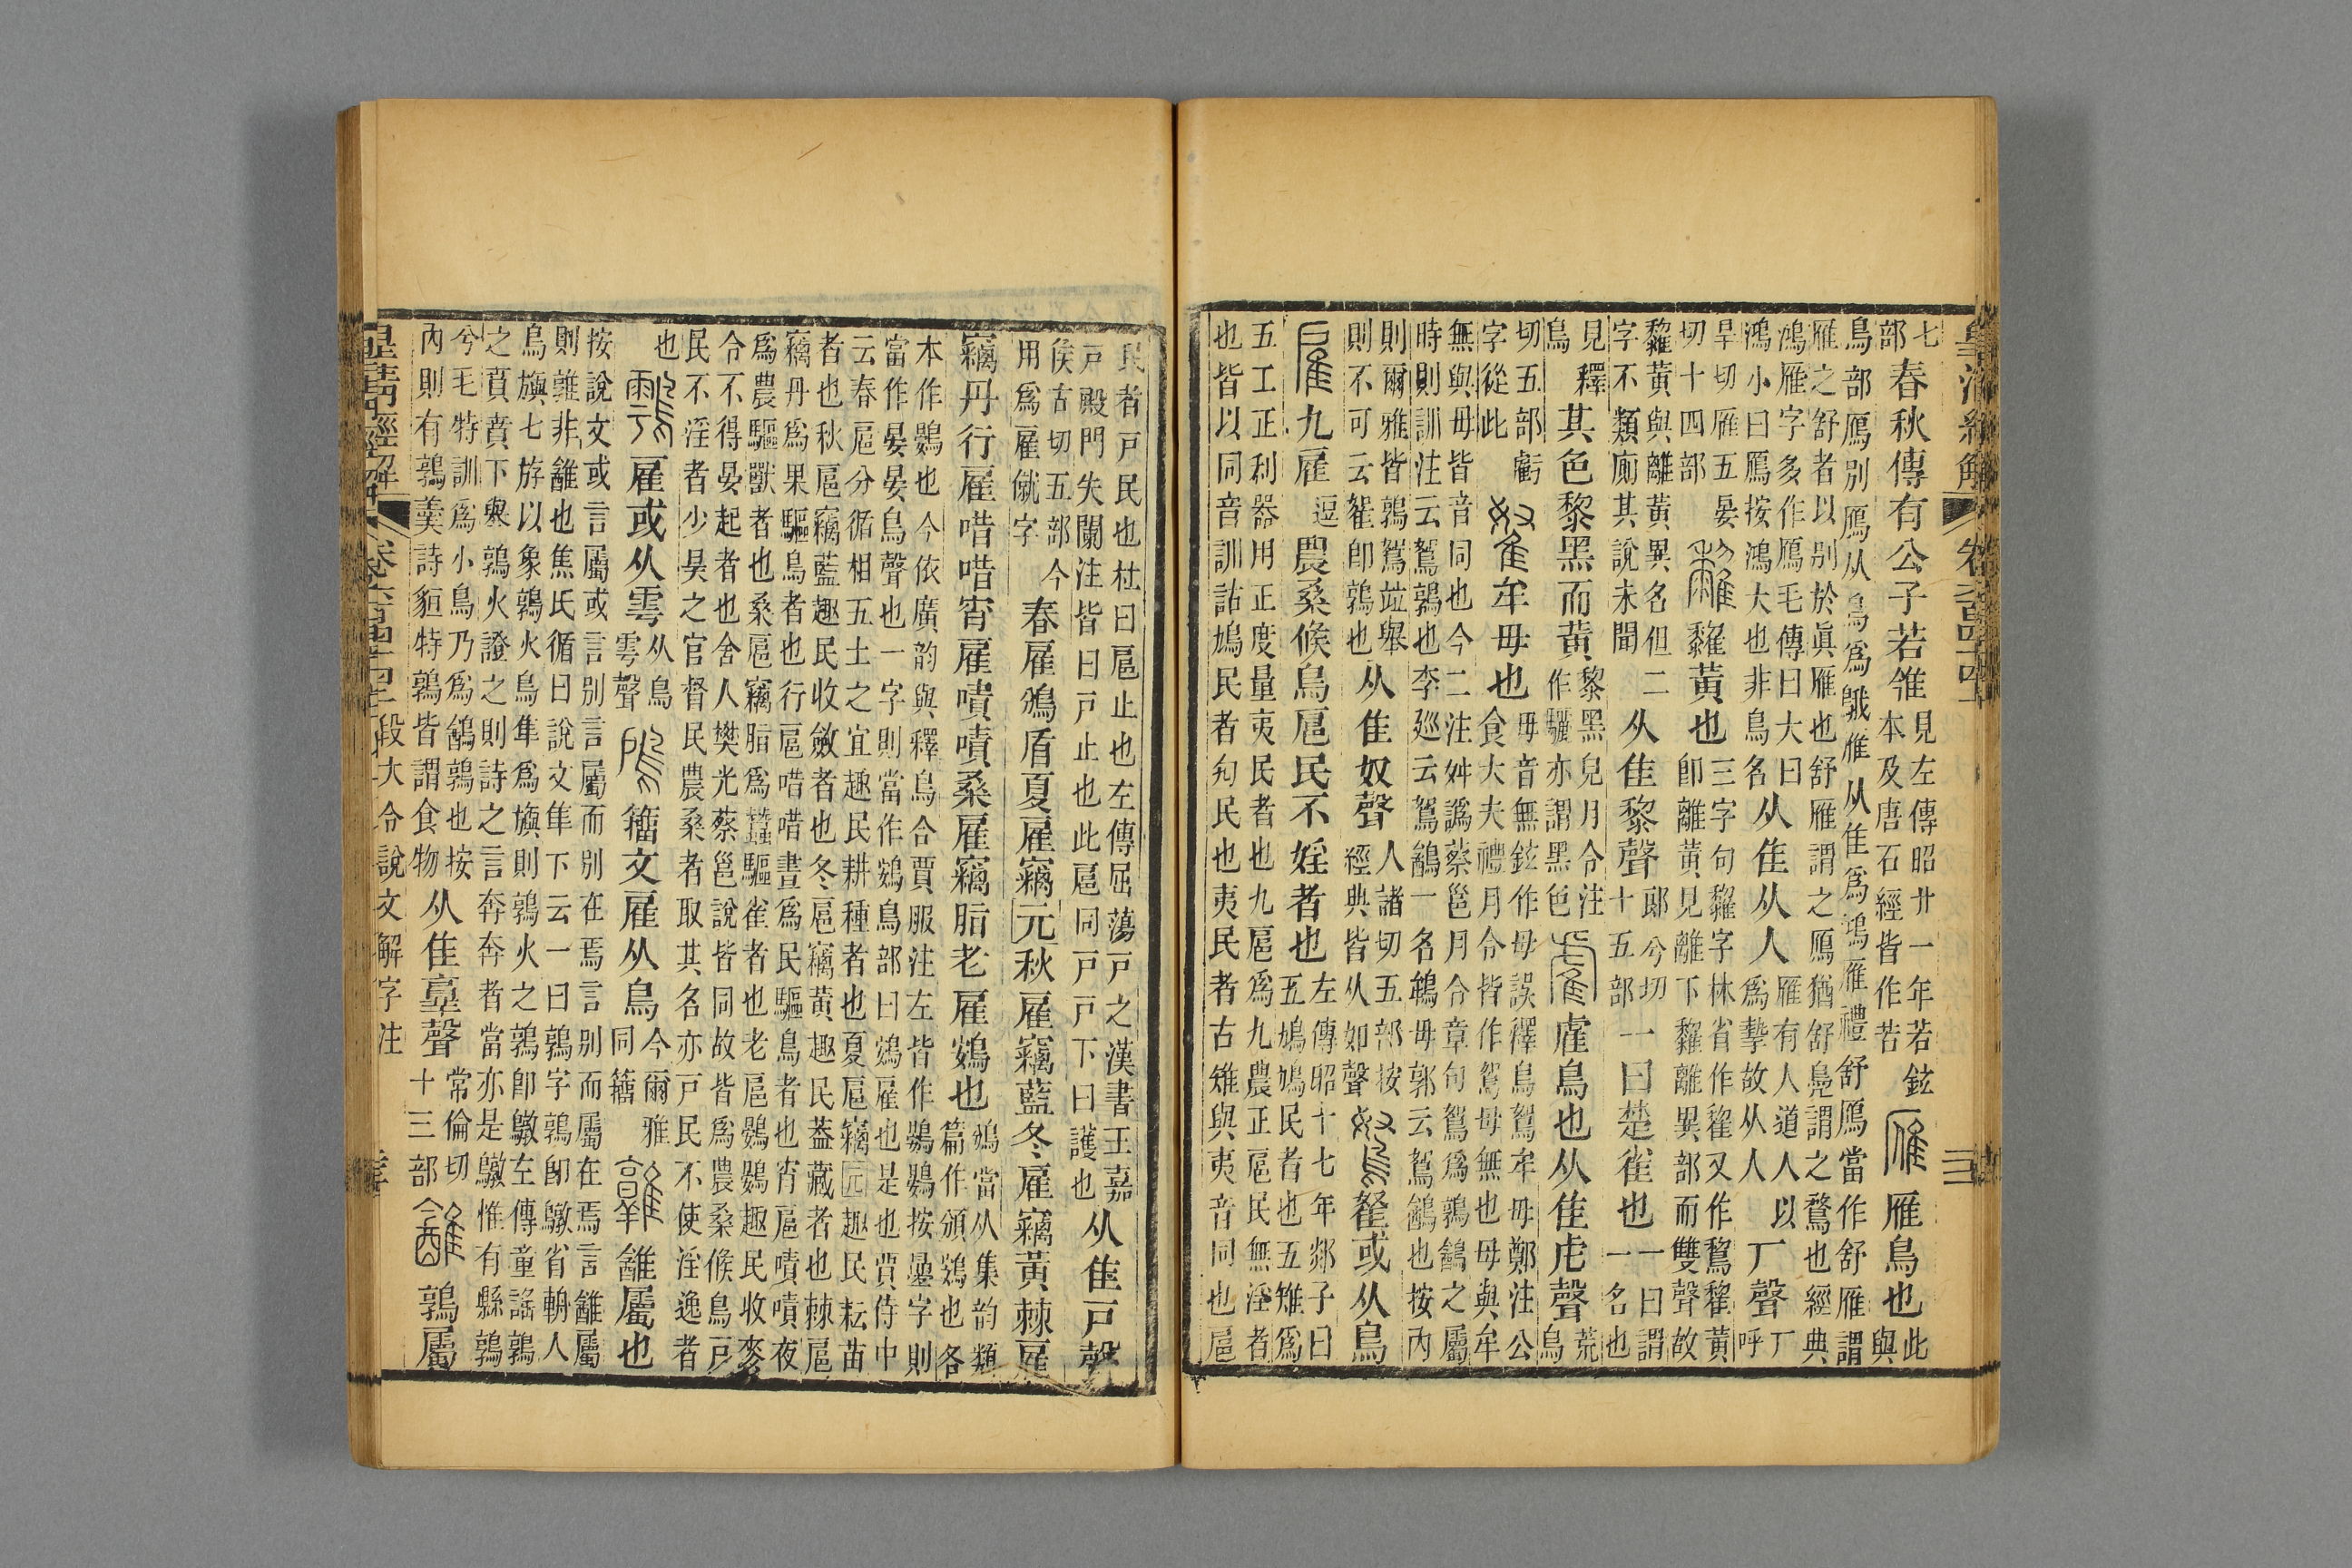 皇清經解 卷六百四十四 三
七部春秋傳有公子若雂見左傳昭廿一年若鉉本及唐石經皆作若雁鳥也此與
鳥部鴈別鴈从鳥爲䳘雁从隹爲鴻雁禮舒鴈當作舒雁謂
雁之舒者以別於眞雁也舒雁謂之鴈猶舒鳧謂之鶩也經典
鴻雁字多作鴈毛傳曰大曰鴻小曰鴈按鴻大也非鳥名从隹从人雁有人道人以爲摯故从人厂聲厂呼
旱切雁五晏切十四部䊪黃也三字句䊪字林省作䵩又作鵹䵩黃卽離黃見離下䊪離異部而雙聲故
䊪黃與離黃異名但二字不類廁其說未聞从隹黎聲郞兮切十五部一曰楚雀也一曰謂一名也
見釋鳥其色黎黑而黃黎黑皃月令注作驪亦謂黑色雐鳥也从隹虍聲荒烏
切五部虧字從此牟毋也毋音無鉉作母誤釋鳥鴽牟毋鄭注公食大夫禮月令皆作鴽母無也母與牟
無與毋皆音同也今二注姆譌蔡邕月令章句鴽爲鶉鷂之屬
時則訓注云鴽鶉也李廵云鴽一名鵪毋郭云鴽也按內
則爾雅皆鶉鴽竝舉則不可云鴽卽鶉也从隹奴聲人諸切五部按經典皆从如聲或从鳥
雇九雇逗農桑候鳥扈民不婬者也左傳昭十七年郯子曰五鳩鳩民者也五雉爲
五工正利器用正度量夷民者也九扈爲九農正扈民無淫者
也皆以同音訓詁鳩民者勼民也夷民者古雉與夷音同也扈
民者戸民也杜曰扈止也左傳屈蕩戸之漢書王嘉戸殿門失闌注皆曰戸止也此扈同戸戸下曰護也从隹戸聲
侯古切五部今用爲雇僦字春雇鳻盾夏雇竊元秋雇竊藍冬雇竊黃棘雇
竊丹行雇唶唶宵雇嘖嘖桑雇竊脂老雇鴳也鳻當从集韵類篇作頒鴳也各
本作鷃也今依廣韵與釋鳥合賈服注左皆作鷃鷃按鷃字則
當作晏晏鳥聲也一字則當作鴳鳥部曰鴳雇也是也賈侍中
云春扈分循相五土之宜趣民耕種者也夏扈竊元趣民耘苗
者也秋扈竊藍趣民收斂者也冬扈竊黃趣民蓋藏者也棘扈
竊丹爲果驅鳥者也行扈唶唶晝爲民驅鳥者也宵扈嘖嘖夜
爲農驅獸者也桑扈竊脂爲蠶驅雀者也老扈鷃鷃趣民收麥
令不得晏起者也舍人樊光蔡邕說皆同故皆爲農桑候鳥戸
民不淫者少昊之官督民農桑者取其名亦戸民不使淫逸者
也雇或从雩从鳥雩聲籒文雇从鳥今爾雅同籒雜屬也
按說文或言屬或言別言屬而別在焉言別而屬在焉言雜屬
則雜非雜也焦氏循曰說文隼下云一曰鶉字鶉卽鷻省輈人
鳥旟七斿以象鶉火鳥隼爲旟則鶉火之鶉卽鷻左傳童謠鶉
之賁賁下舉鶉火證之則詩之言奔奔者當亦是鷻惟有縣鶉
兮毛特訓爲小鳥乃爲鶉也按
內則有鶉羹詩貆特鶉皆謂食物从隹聲常倫切十三部鶉屬
皇清經解 卷六百四十四 段大令說文解字注